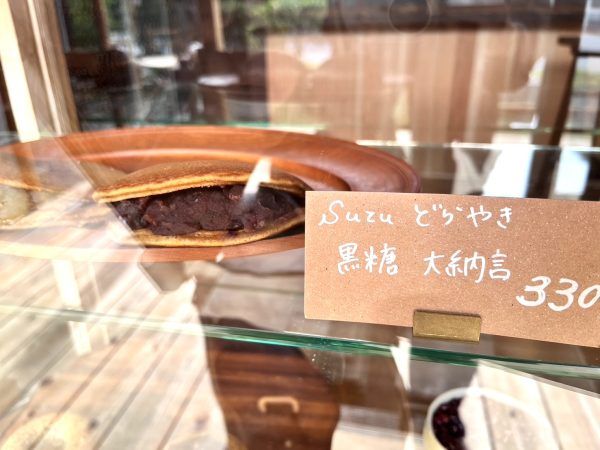 Suzu どらやき
黒糖 大納言
330